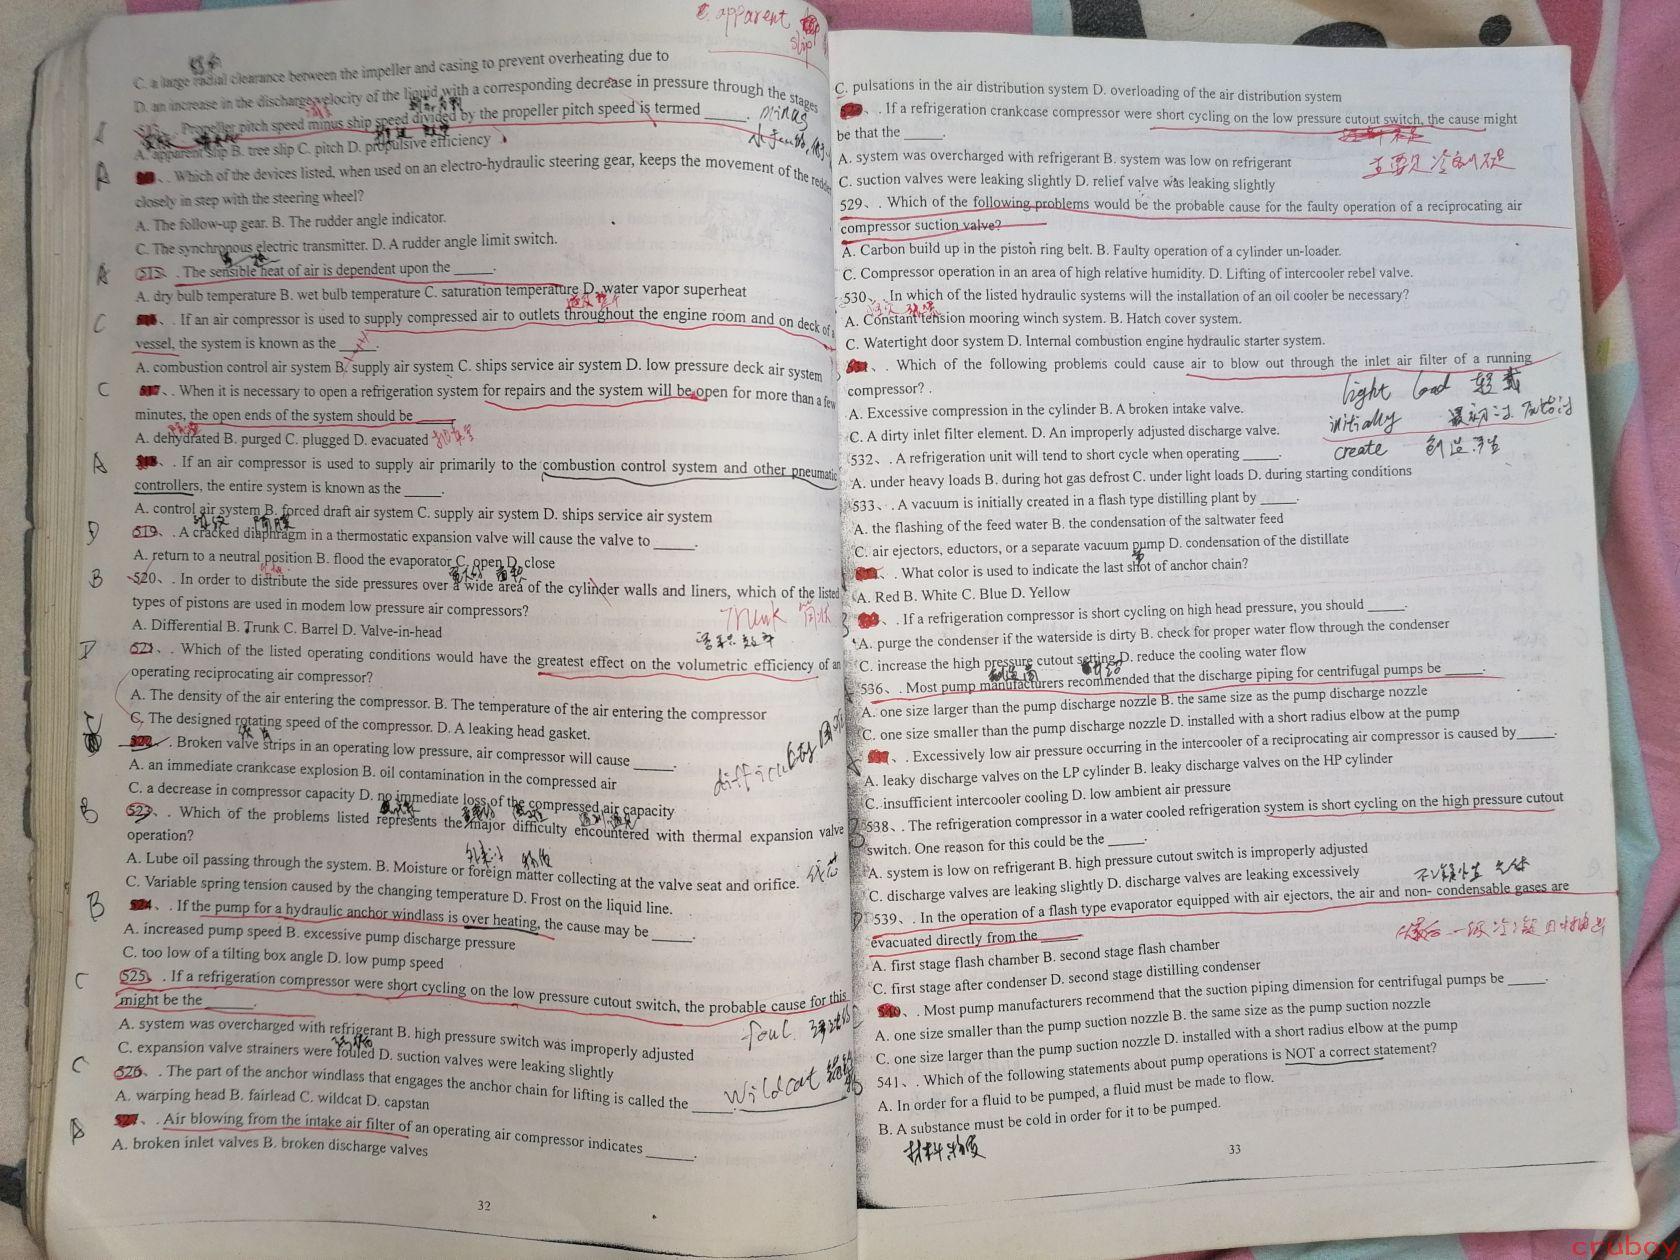 C. apparent slip
C. a large radial clearance between the impeller and casing to prevent overheating due to
D. an increase in the discharge velocity of the liquid with a corresponding decrease in pressure through the stages
Propeller pitch speed minus ship speed divided by the propeller pitch speed is termed _____.
minus
A. apparent slip B. tree slip C. pitch D. propulsive efficiency
A
、. Which of the devices listed, when used on an electro-hydraulic steering gear, keeps the movement of the
closely in step with the steering wheel?
A. The follow-up gear. B. The rudder angle indicator.
C. The synchronous electric transmitter. D. A rudder angle limit switch.
A 515、. The sensible heat of air is dependent upon the _____.
A. dry bulb temperature B. wet bulb temperature C. saturation temperature D. water vapor superheat
C 516、. If an air compressor is used to supply compressed air to outlets throughout the engine room and on deck of a
vessel, the system is known as the _____.
A. combustion control air system B. supply air system C. ships service air system D. low pressure deck air system
C 517、. When it is necessary to open a refrigeration system for repairs and the system will be open for more than a few
minutes, the open ends of the system should be _____
A. dehydrated B. purged C. plugged D. evacuated 抽真空
A 518、. If an air compressor is used to supply air primarily to the combustion control system and other pneumatic
controllers, the entire system is known as the _____.
A. control air system B. forced draft air system C. supply air system D. ships service air system
D 519、. A cracked diaphragm in a thermostatic expansion valve will cause the valve to _____.
A. return to a neutral position B. flood the evaporator C. open D. close
B 520、. In order to distribute the side pressures over a wide area of the cylinder walls and liners, which of the listed
types of pistons are used in modem low pressure air compressors?
Trunk 筒状
A. Differential B. Trunk C. Barrel D. Valve-in-head
D 521、. Which of the listed operating conditions would have the greatest effect on the volumetric efficiency of an
operating reciprocating air compressor?
A. The density of the air entering the compressor. B. The temperature of the air entering the compressor
C. The designed rotating speed of the compressor. D. A leaking head gasket.
C 522、. Broken valve strips in an operating low pressure, air compressor will cause _____.
difficulty 困难
A. an immediate crankcase explosion B. oil contamination in the compressed air
C. a decrease in compressor capacity D. no immediate loss of the compressed air capacity
B 523、. Which of the problems listed represents the major difficulty encountered with thermal expansion valve
operation?
A. Lube oil passing through the system. B. Moisture or foreign matter collecting at the valve seat and orifice.
C. Variable spring tension caused by the changing temperature D. Frost on the liquid line.
B 524、. If the pump for a hydraulic anchor windlass is over heating, the cause may be _____.
A. increased pump speed B. excessive pump discharge pressure
C. too low of a tilting box angle D. low pump speed
C 525、. If a refrigeration compressor were short cycling on the low pressure cutout switch, the probable cause for this
might be the _____.
foul
A. system was overcharged with refrigerant B. high pressure switch was improperly adjusted
C. expansion valve strainers were fouled D. suction valves were leaking slightly
C 526、. The part of the anchor windlass that engages the anchor chain for lifting is called the _____.
wildcat
A. warping head B. fairlead C. wildcat D. capstan
A 527、. Air blowing from the intake air filter of an operating air compressor indicates _____.
A. broken inlet valves B. broken discharge valves
32
C. pulsations in the air distribution system D. overloading of the air distribution system
、. If a refrigeration crankcase compressor were short cycling on the low pressure cutout switch, the cause might
be that the _____.
A. system was overcharged with refrigerant B. system was low on refrigerant
主要是冷剂不足
C. suction valves were leaking slightly D. relief valve was leaking slightly
529、. Which of the following problems would be the probable cause for the faulty operation of a reciprocating air
compressor suction valve?
A. Carbon build up in the piston ring belt. B. Faulty operation of a cylinder un-loader.
C. Compressor operation in an area of high relative humidity. D. Lifting of intercooler rebel valve.
530、. In which of the listed hydraulic systems will the installation of an oil cooler be necessary?
A. Constant tension mooring winch system. B. Hatch cover system.
C. Watertight door system D. Internal combustion engine hydraulic starter system.
531、. Which of the following problems could cause air to blow out through the inlet air filter of a running
compressor? .
light load 轻载
A. Excessive compression in the cylinder B. A broken intake valve.
initially 最初
C. A dirty inlet filter element. D. An improperly adjusted discharge valve.
create 创造
532、. A refrigeration unit will tend to short cycle when operating _____.
A. under heavy loads B. during hot gas defrost C. under light loads D. during starting conditions
533、. A vacuum is initially created in a flash type distilling plant by _____.
A. the flashing of the feed water B. the condensation of the saltwater feed
C. air ejectors, eductors, or a separate vacuum pump D. condensation of the distillate
、. What color is used to indicate the last shot of anchor chain?
A. Red B. White C. Blue D. Yellow
、. If a refrigeration compressor is short cycling on high head pressure, you should _____.
A. purge the condenser if the waterside is dirty B. check for proper water flow through the condenser
C. increase the high pressure cutout setting D. reduce the cooling water flow
536、. Most pump manufacturers recommended that the discharge piping for centrifugal pumps be _____.
A. one size larger than the pump discharge nozzle B. the same size as the pump discharge nozzle
C. one size smaller than the pump discharge nozzle D. installed with a short radius elbow at the pump
537、. Excessively low air pressure occurring in the intercooler of a reciprocating air compressor is caused by_____.
A. leaky discharge valves on the LP cylinder B. leaky discharge valves on the HP cylinder
C. insufficient intercooler cooling D. low ambient air pressure
538、. The refrigeration compressor in a water cooled refrigeration system is short cycling on the high pressure cutout
switch. One reason for this could be the _____.
A. system is low on refrigerant B. high pressure cutout switch is improperly adjusted
C. discharge valves are leaking slightly D. discharge valves are leaking excessively
539、. In the operation of a flash type evaporator equipped with air ejectors, the air and non- condensable gases are
evacuated directly from the _____
A. first stage flash chamber B. second stage flash chamber
C. first stage after condenser D. second stage distilling condenser
540、. Most pump manufacturers recommend that the suction piping dimension for centrifugal pumps be _____.
A. one size smaller than the pump suction nozzle B. the same size as the pump suction nozzle
C. one size larger than the pump suction nozzle D. installed with a short radius elbow at the pump
541、. Which of the following statements about pump operations is NOT a correct statement?
A. In order for a fluid to be pumped, a fluid must be made to flow.
B. A substance must be cold in order for it to be pumped.
材料、物质
33
cruboy